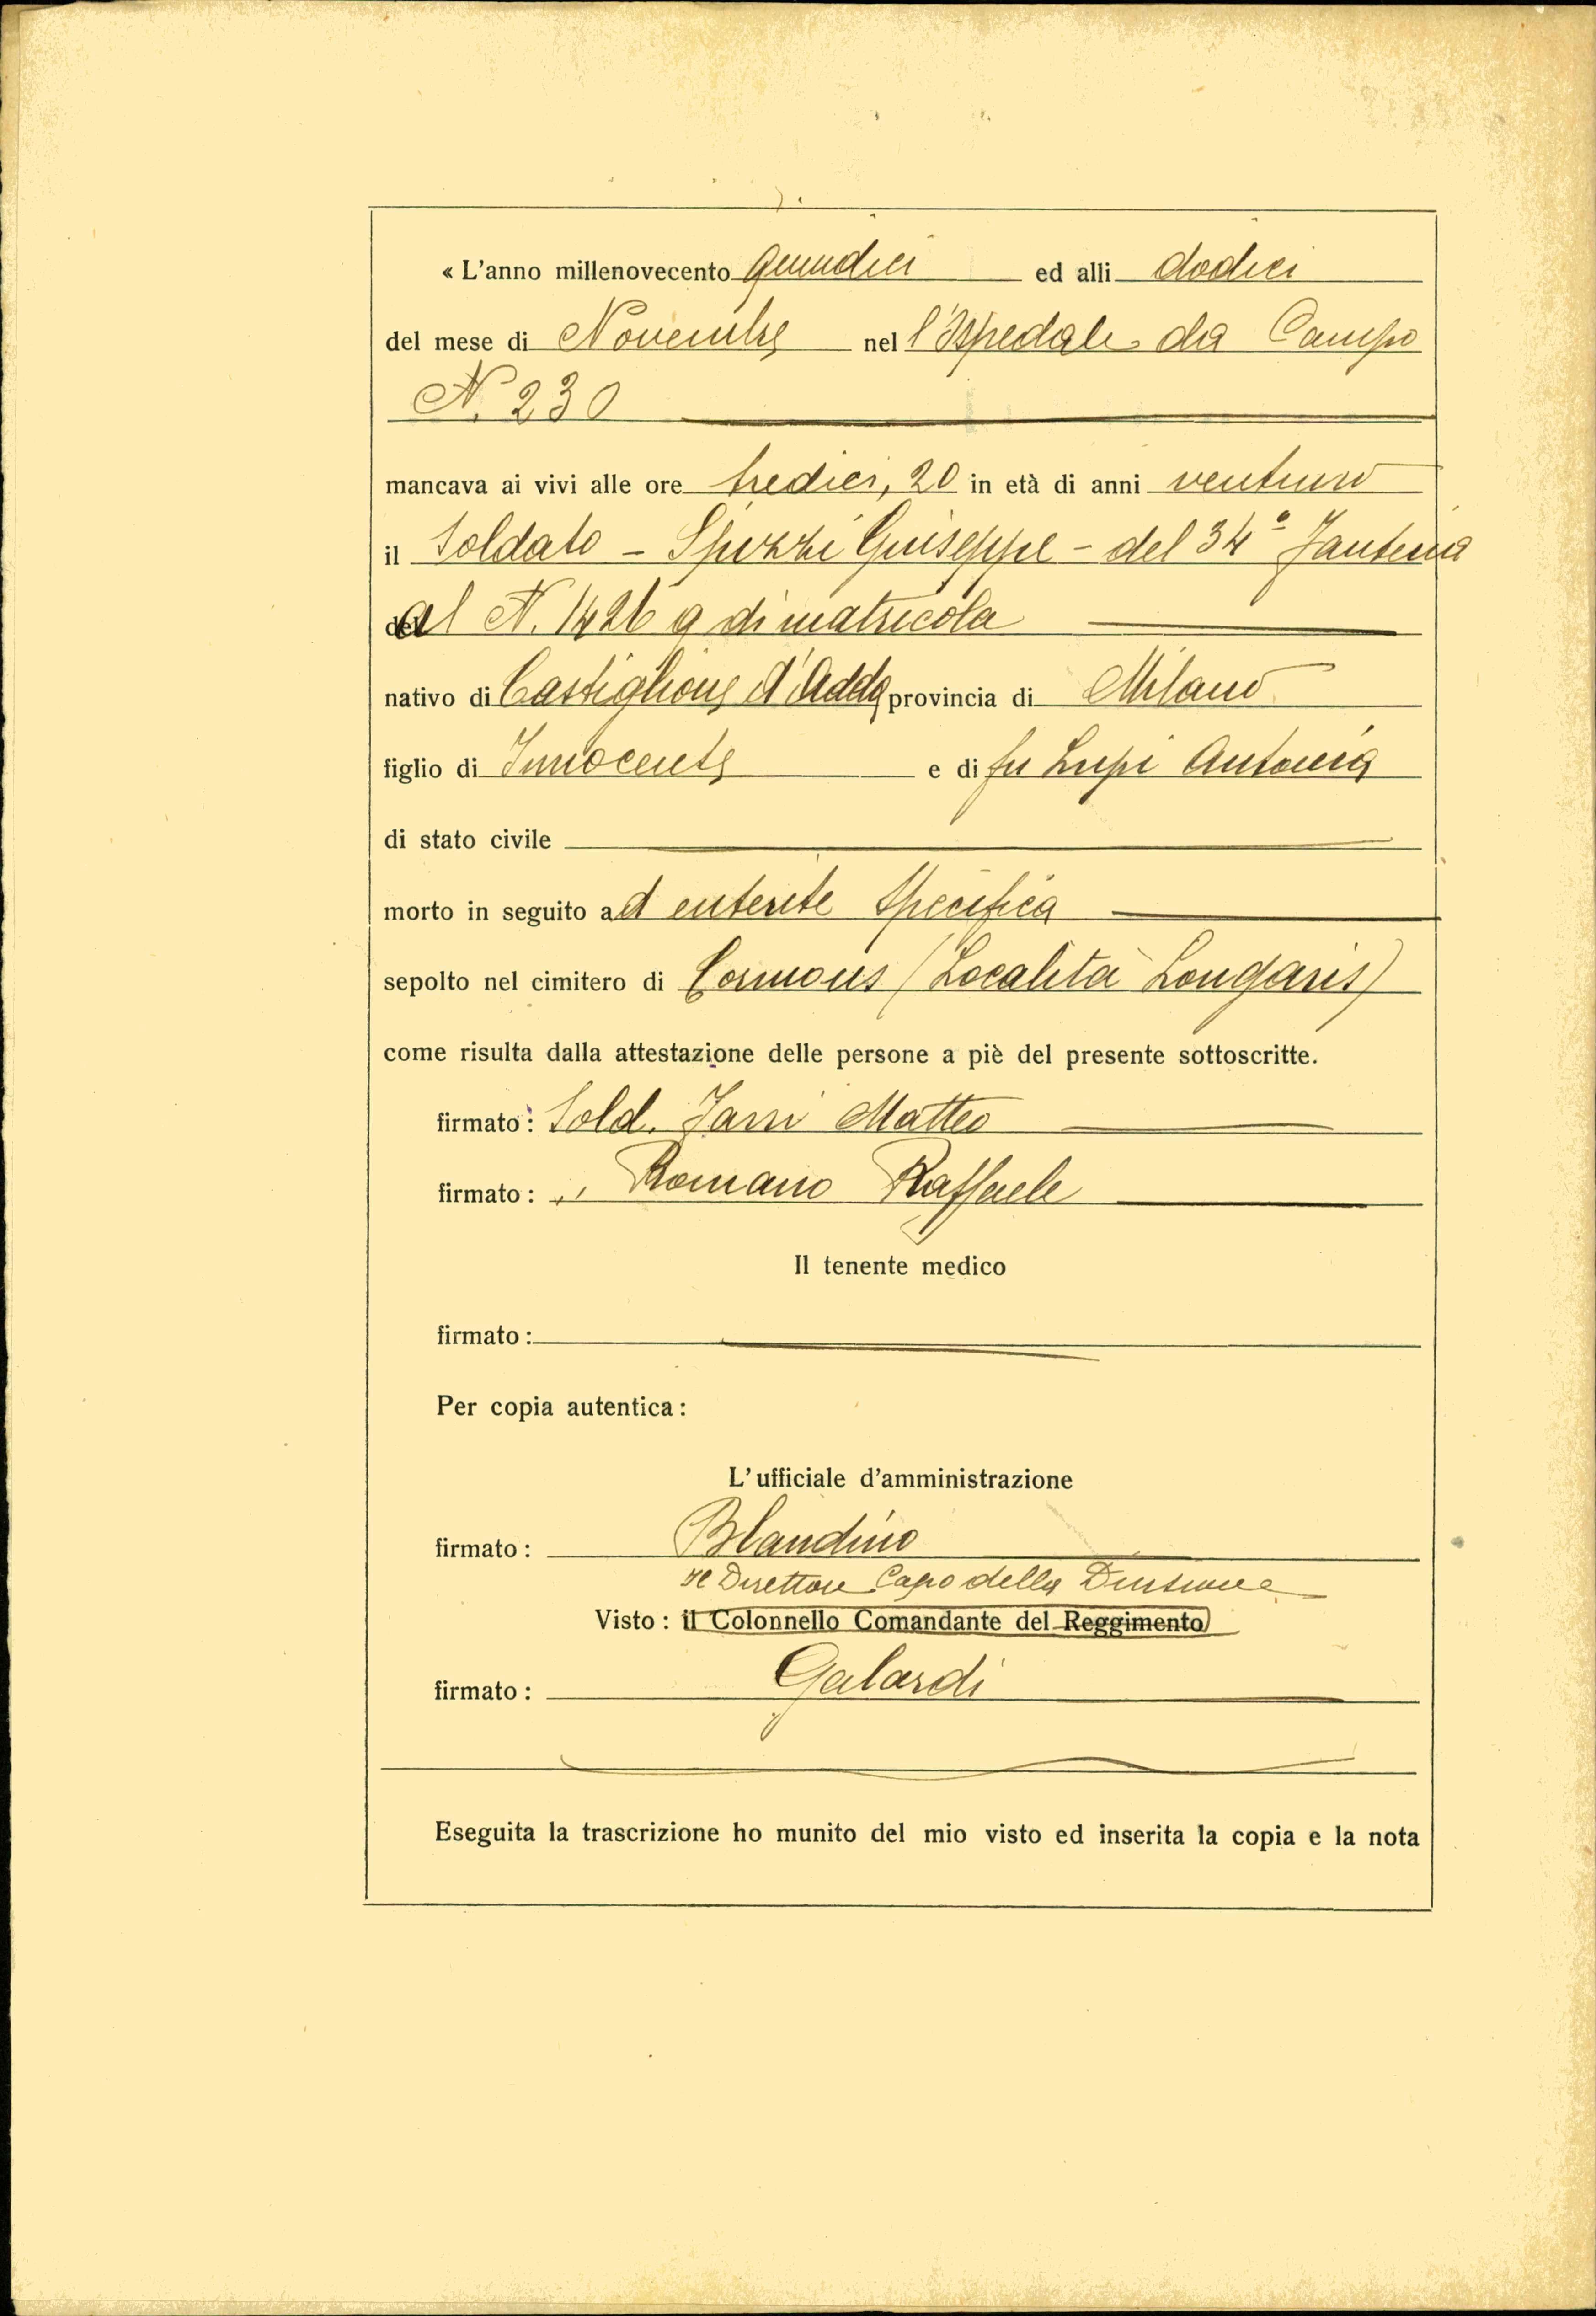 « L'anno millenovecento quindici ed alli dodici
del mese di Novembre nel l'Ospedale da Campo
N. 230
mancava ai vivi alle ore tredici, 20 in età di anni ventuno
il Soldato - Spizzi Giuseppe - del 34° Fanteria
al N. 14269 di matricola
nativo di Castiglione d'Adda provincia di Milano
figlio di Innocente e di fu Lupi Antonia
di stato civile
morto in seguito ad enterite specifica
sepolto nel cimitero di Cormons (Località Longaris)
come risulta dalla attestazione delle persone a piè del presente sottoscritte.
firmato: Sold. Matteo
firmato: „ Romano Raffaele
Il tenente medico
firmato:
Per copia autentica:
L'ufficiale d'amministrazione
firmato: Blandino
Il Direttore Capo della Divisione
Visto: il Colonnello Comandante del Reggimento
firmato: Galardi
Eseguita la trascrizione ho munito del mio visto ed inserita la copia e la nota